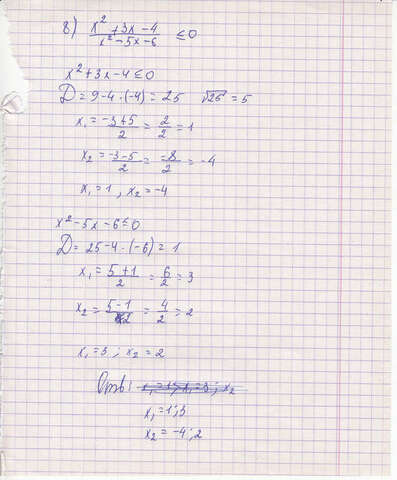 8) (x² + 3x - 4) / (x² - 5x - 6) ≤ 0
x² + 3x - 4 ≤ 0
D = 9 - 4 · (-4) = 25   √25 = 5
x₁ = (-3 + 5) / 2 = 2 / 2 = 1
x₂ = (-3 - 5) / 2 = -8 / 2 = -4
x₁ = 1, x₂ = -4
x² - 5x - 6 ≤ 0
D = 25 - 4 · (-6) = 1
x₁ = (5 + 1) / 2 = 6 / 2 = 3
x₂ = (5 - 1) / 2 = 4 / 2 = 2
x₁ = 3; x₂ = 2
Отв:
x₁ = 1; 3
x₂ = -4; 2